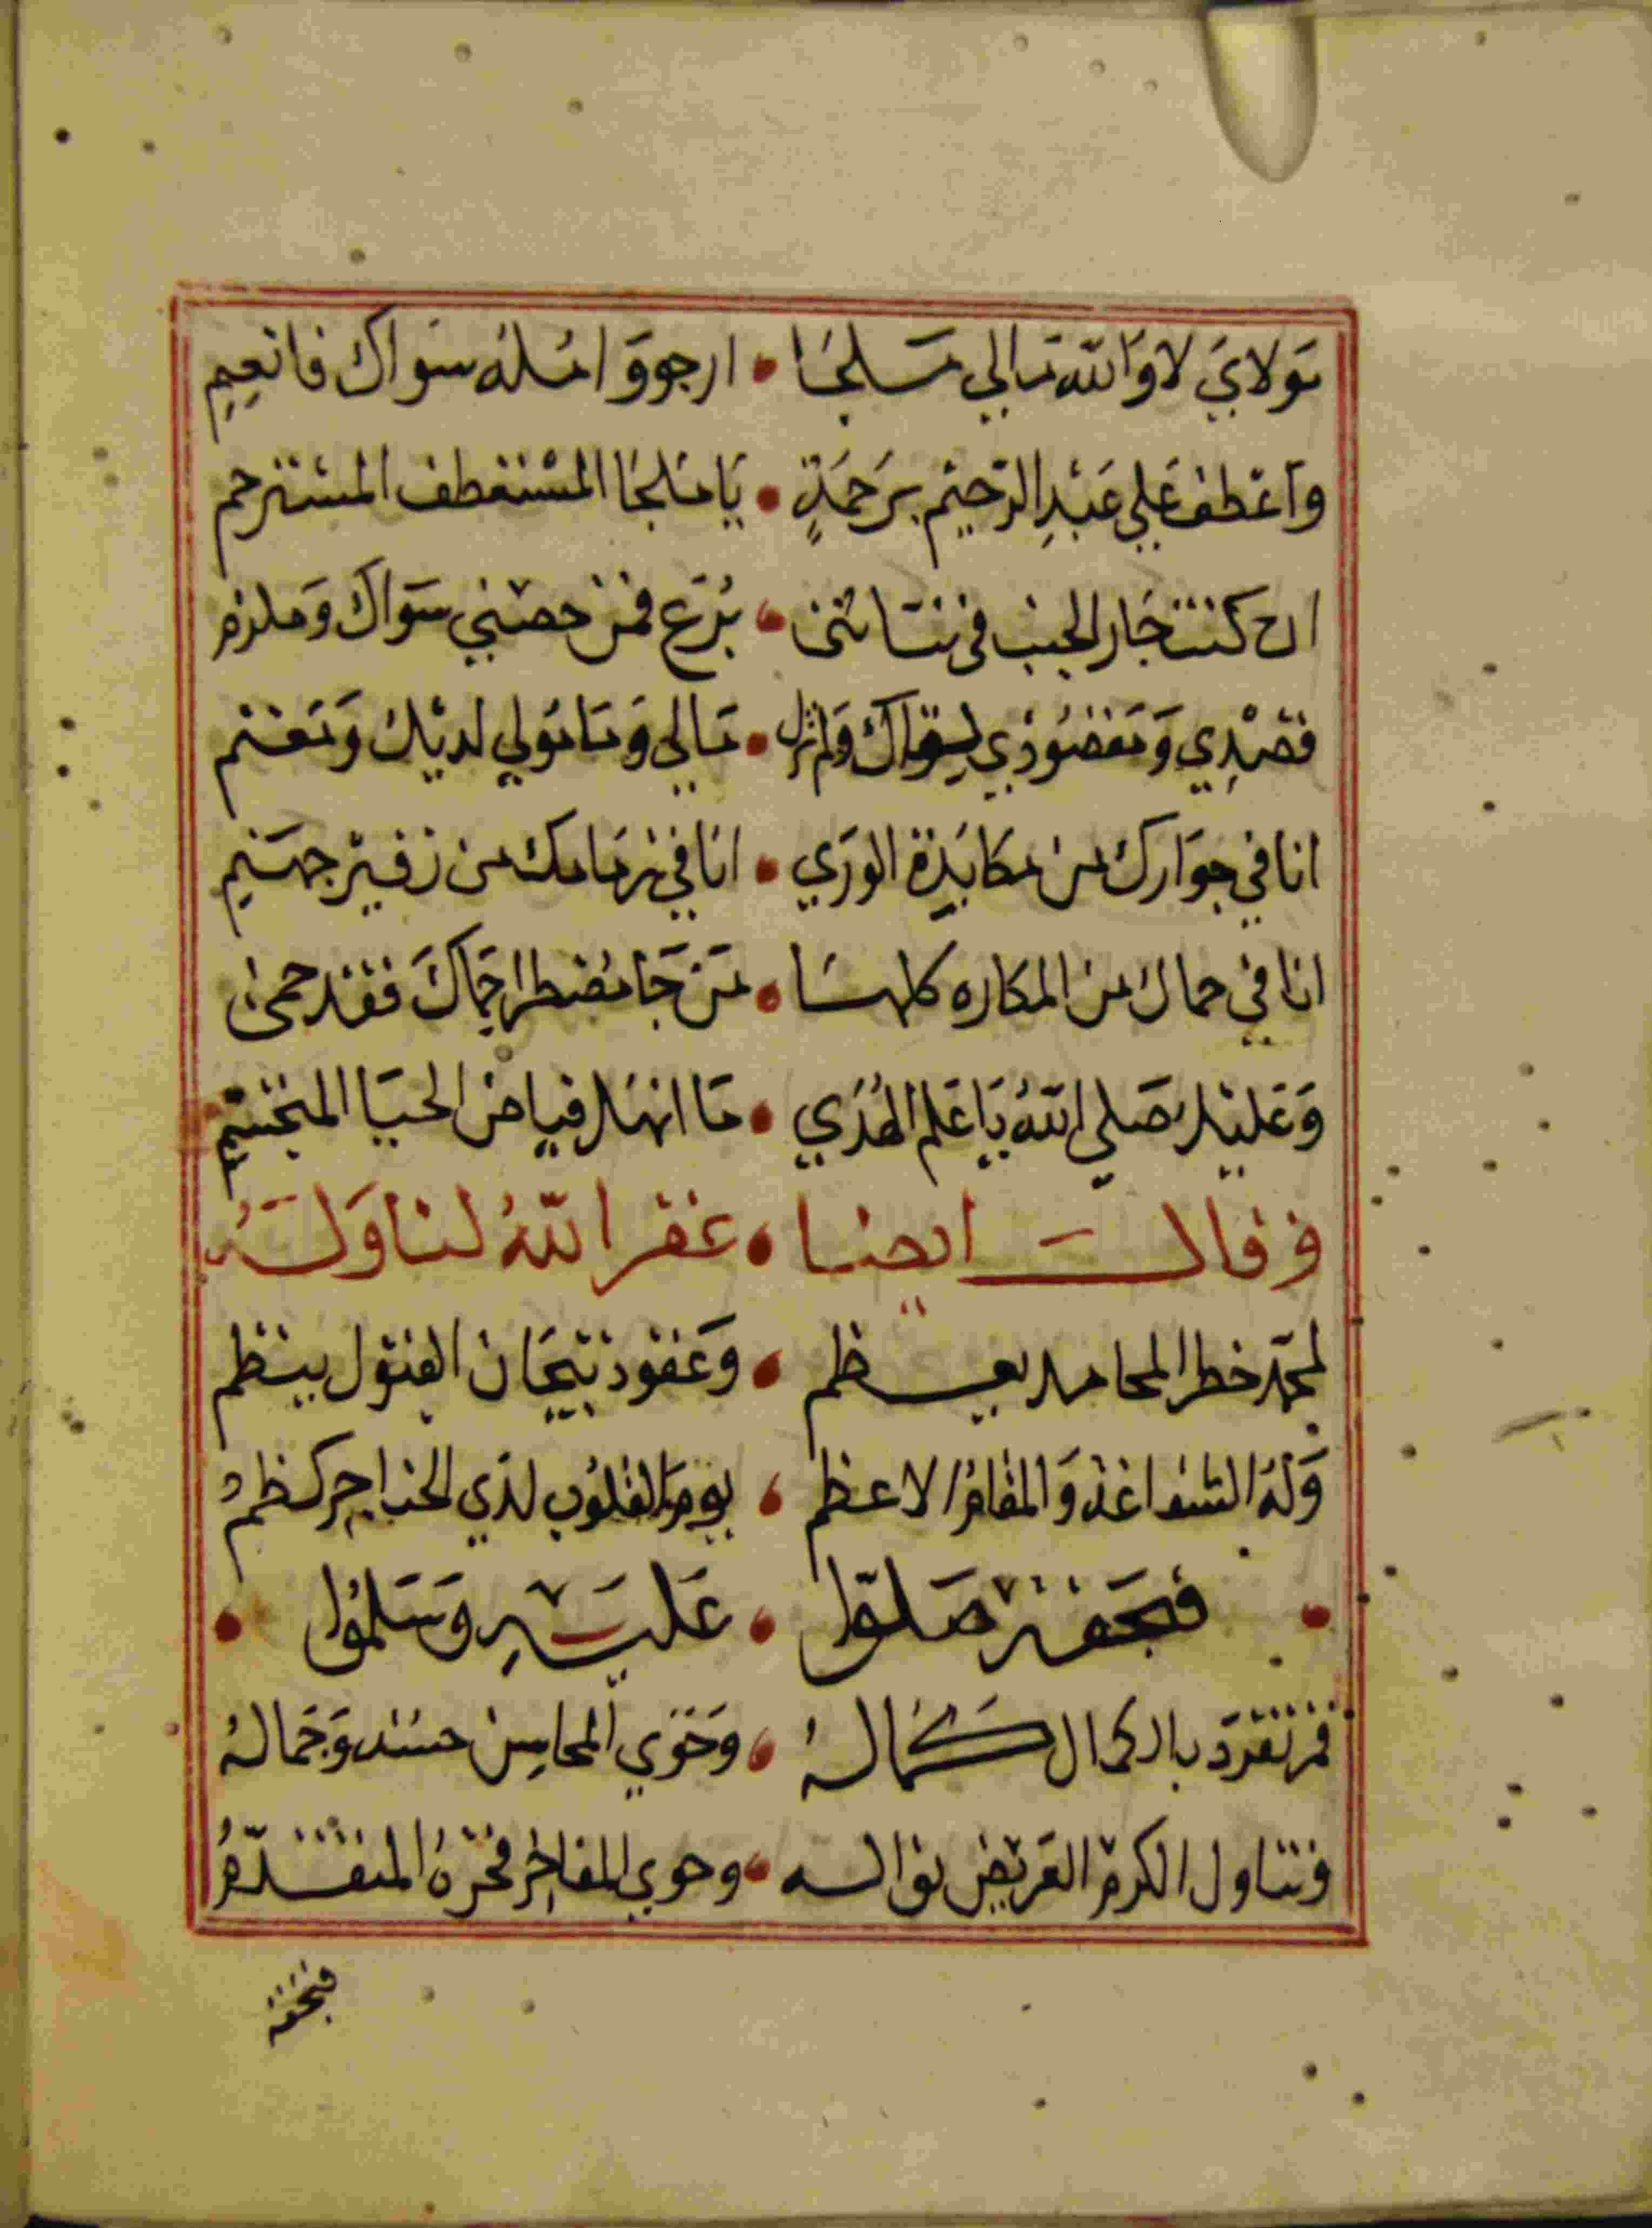 مولاي لا والله مالي ملجا • ارجو وامله سواك فانعم
واعطف علي عبد الرحيم برحمة • يا ملجا المستعطف المسترحم
ان كنت جار الجنب في نيابتي • برع فمن حصني سواك وملزم
قصدي ومقصودي سواك ولم تزل • مالي ومامولي لديك ومغنم
انا في جوارك من مكايدة الوري • انا في زمامك من زفير جهنم
انا في حماك من المكاره كلها • من جا مضطرا حماك فقد حمى
وعليك صلي الله يا علم الهدي • ما انهل فياض الحيا المنجم
وقال ايضا • غفر الله لنا وله
لمحمد خطر المحامد يعظم • وعقود تيجان القبول ينظم
وله الشفاعة والمقام الاعظم • يوم القلوب لدي الحناجر كظم
فبحقه صلوا • عليه وسلموا •
قمر تفرد بالكمال كماله • وحوي المحاسن حسنه وجماله
وتناول الكرم العريض نواله • وحوي المفاخر فخره المتقدم
فبحقه